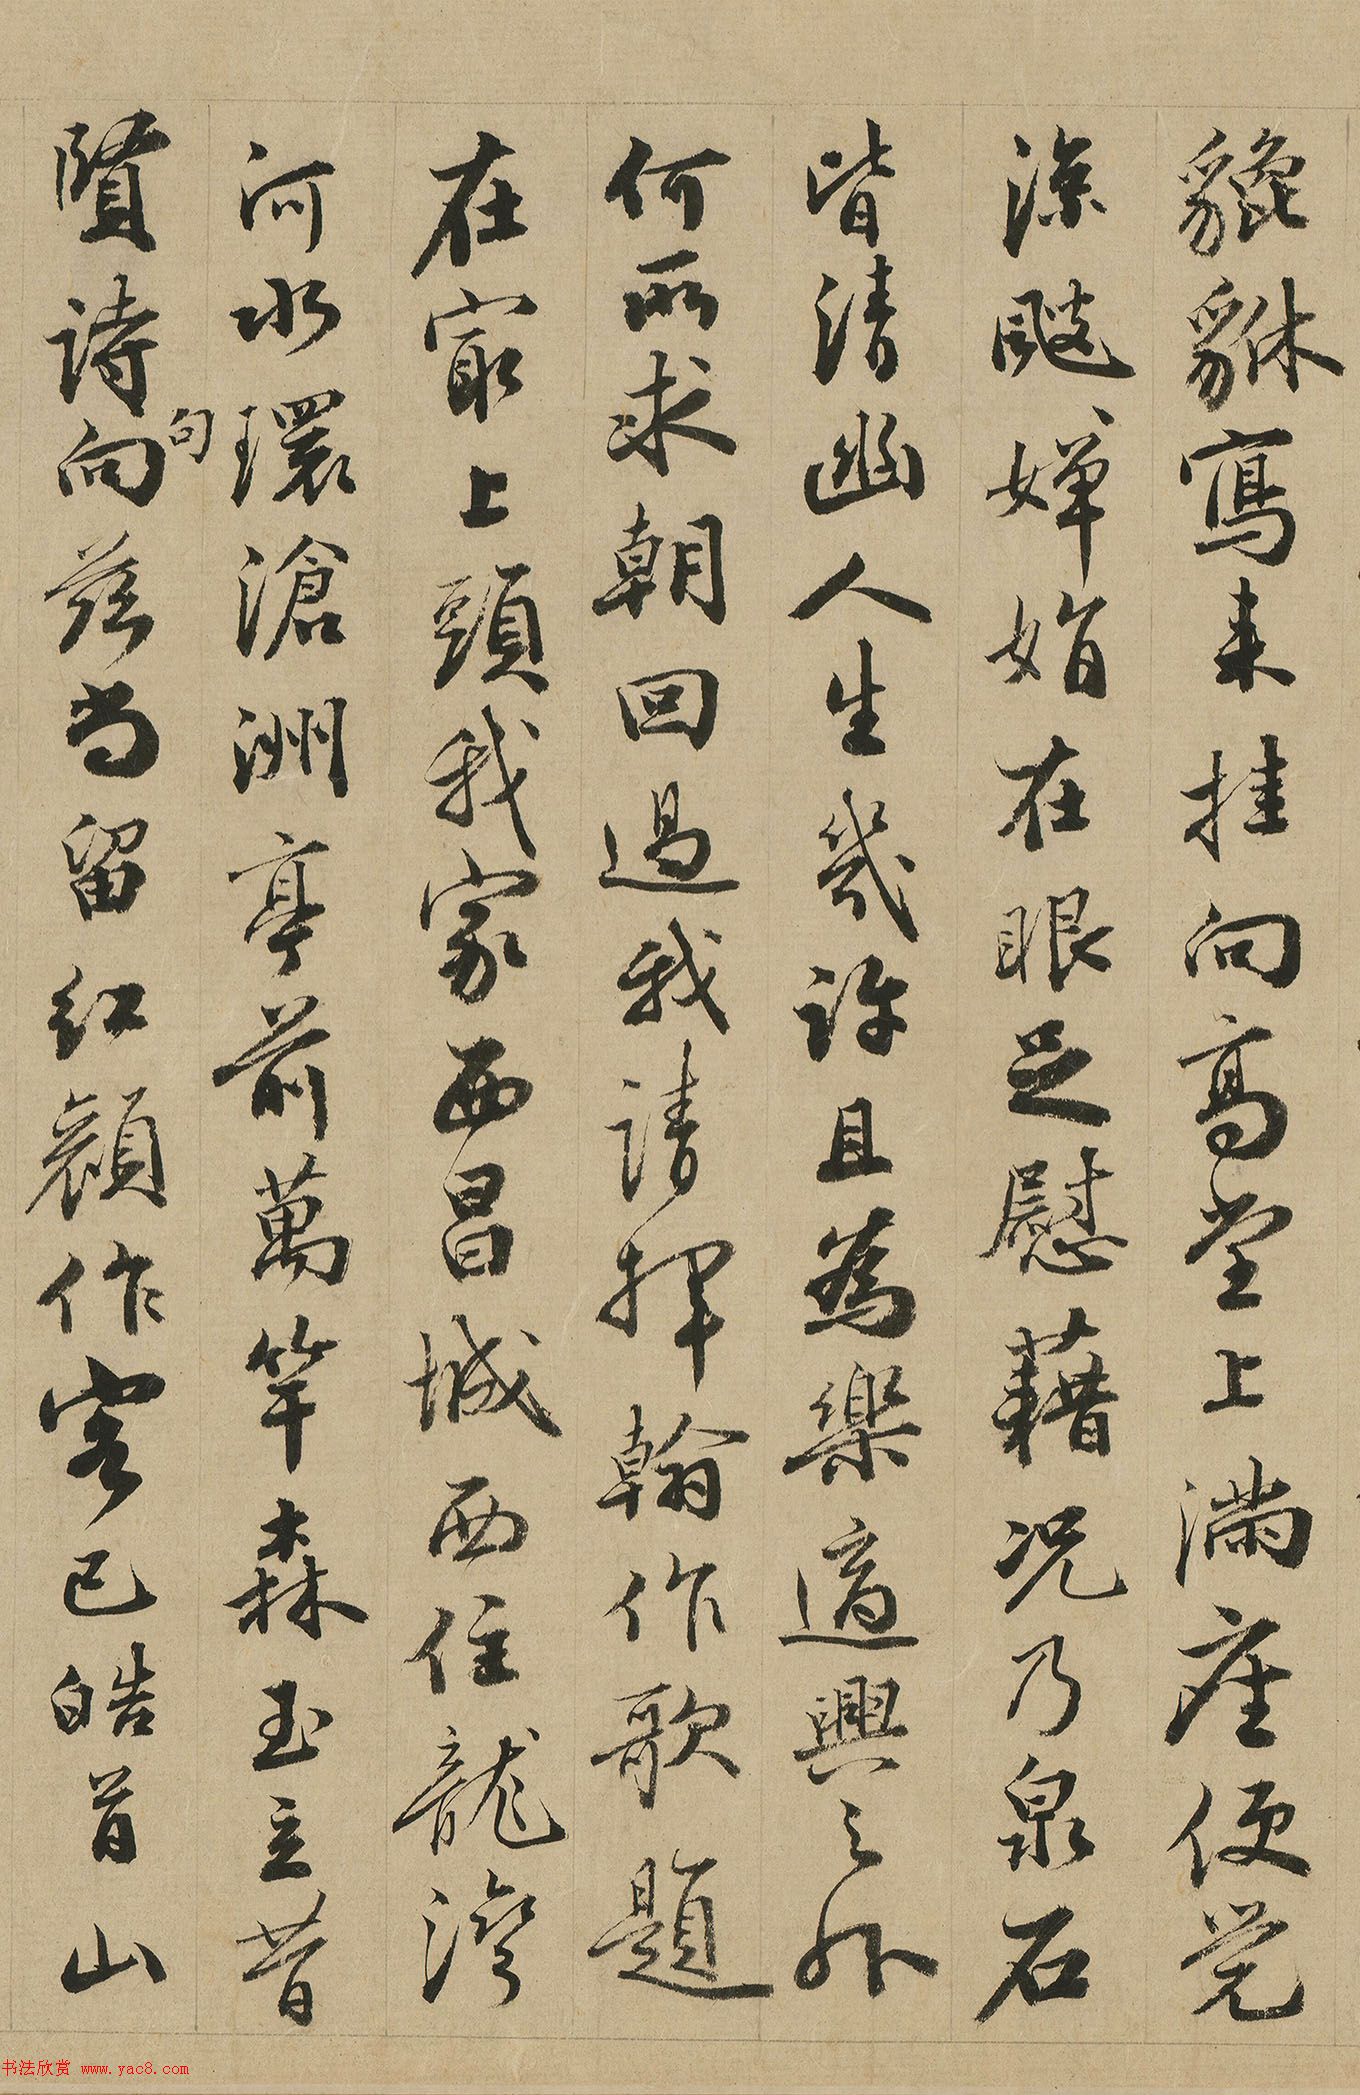 貔貅寫來挂向高堂上滿座便覺
涼颸嬋娟在眼足慰藉況乃泉石
皆清幽人生幾許且為樂適興之外
何所求朝回過我請揮翰作歌題
在最上頭我家西昌城西住龍灣
河水環滄洲亭前萬竿森玉立昔
賢詩句向茲當留紅顏作客已皓首山
书法欣赏 www.yac8.com